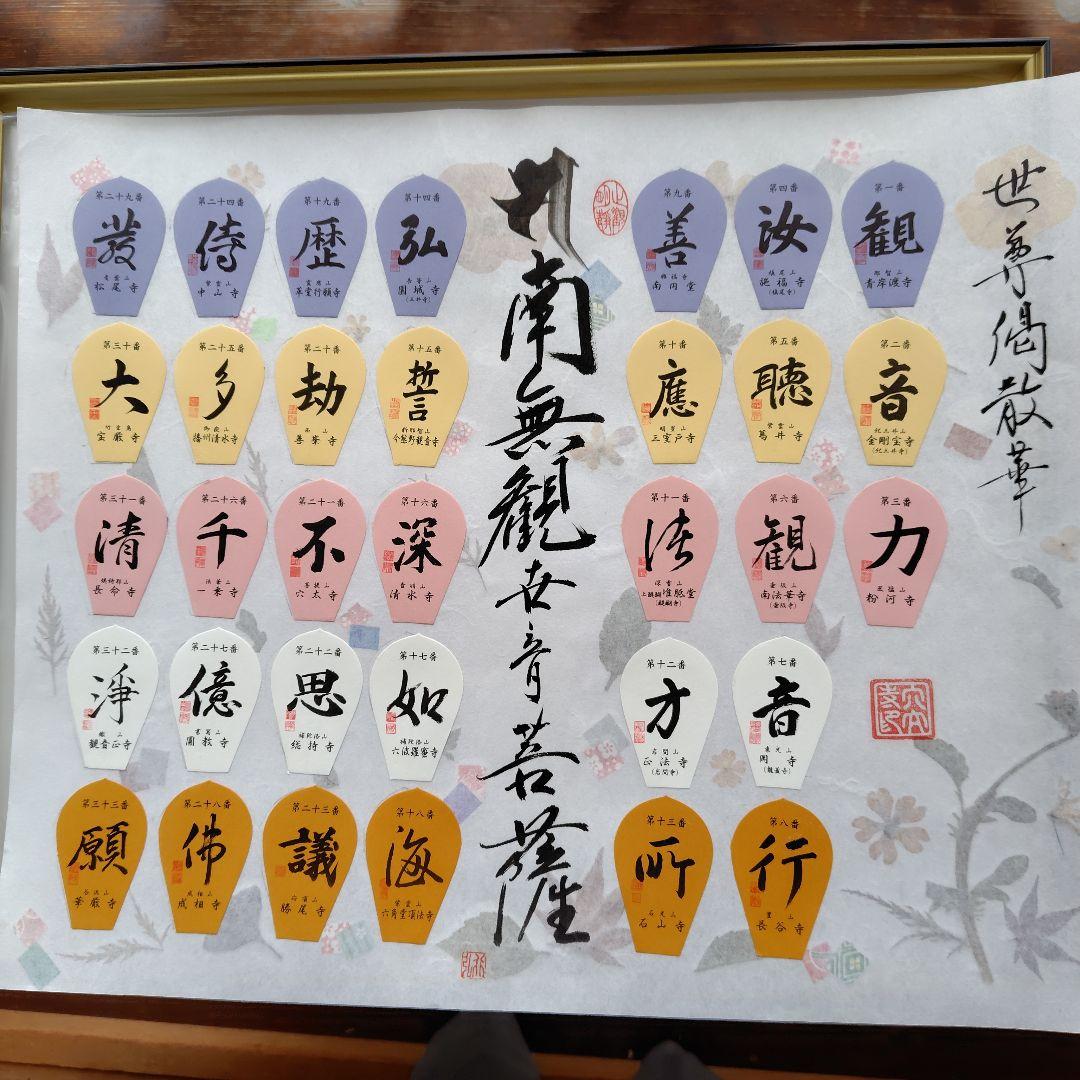 世尊偈散華
第一番
観
那智山
青岸渡寺
第二番
音
紀三井山
金剛宝寺
(紀三井寺)
第三番
力
風猛山
粉河寺
第四番
汝
槙尾山
施福寺
(槙尾寺)
第五番
聴
紫雲山
葛井寺
第六番
観
壷阪山
南法華寺
(壷阪寺)
第七番
音
東光山
岡寺
(龍蓋寺)
第八番
行
豊山
長谷寺
第九番
善
興福寺
南円堂
第十番
應
明星山
三室戸寺
第十一番
諸
深雪山
上醍醐准胝堂
(醍醐寺)
第十二番
方
岩間山
正法寺
(岩間寺)
第十三番
所
石光山
石山寺
南無觀世音菩薩
第十四番
弘
長等山
園城寺
(三井寺)
第十五番
誓
新那智山
今熊野観音寺
第十六番
深
音羽山
清水寺
第十七番
如
補陀洛山
六波羅蜜寺
第十八番
海
紫雲山
六角堂頂法寺
第十九番
歴
霊麀山
革堂行願寺
第二十番
劫
西山
善峯寺
第二十一番
不
菩提山
穴太寺
第二十二番
思
補陀洛山
総持寺
第二十三番
議
応頂山
勝尾寺
第二十四番
侍
紫雲山
中山寺
第二十五番
多
御嶽山
播州清水寺
第二十六番
千
法華山
一乗寺
第二十七番
億
書寫山
圓教寺
第二十八番
佛
成相山
成相寺
第二十九番
發
青葉山
松尾寺
第三十番
大
竹生島
宝厳寺
第三十一番
清
姨綺耶山
長命寺
第三十二番
淨
繖山
観音正寺
第三十三番
願
谷汲山
華厳寺